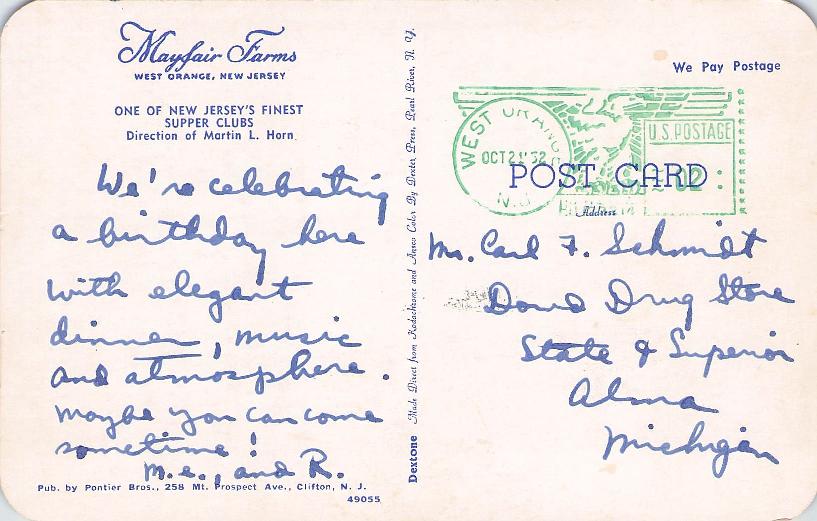 Mayfair Farms
WEST ORANGE, NEW JERSEY
ONE OF NEW JERSEY'S FINEST
SUPPER CLUBS
Direction of Martin L. Horn
We're celebrating
a birthday here
with elegant
dinner, music
and atmosphere.
maybe you can come
sometime!
M.E., and R.
Pub. by Pontier Bros., 258 Mt. Prospect Ave., Clifton, N. J.
49055
Dextone Made Direct from Kodachrome and Ansco Color By Dexter Press, Pearl River, N. Y.
We Pay Postage
WEST ORANGE
OCT 21 '52
N.J.
U.S. POSTAGE
02
POST CARD
Address
Mr. Carl F. Schmidt
Drug Store
State & Superior
Alma
Michigan